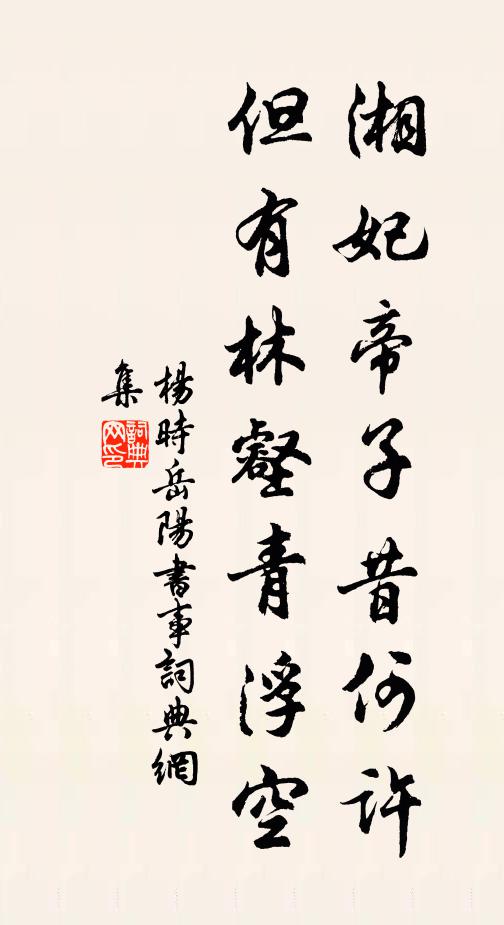 湘妃帝子昔何許
但有林壑青浮空
楊時岳陽書事詞典網
集
詞典
网印